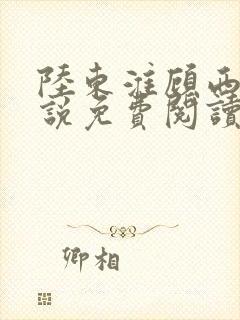 陸東淮顧西
說免費閱讀
卿相